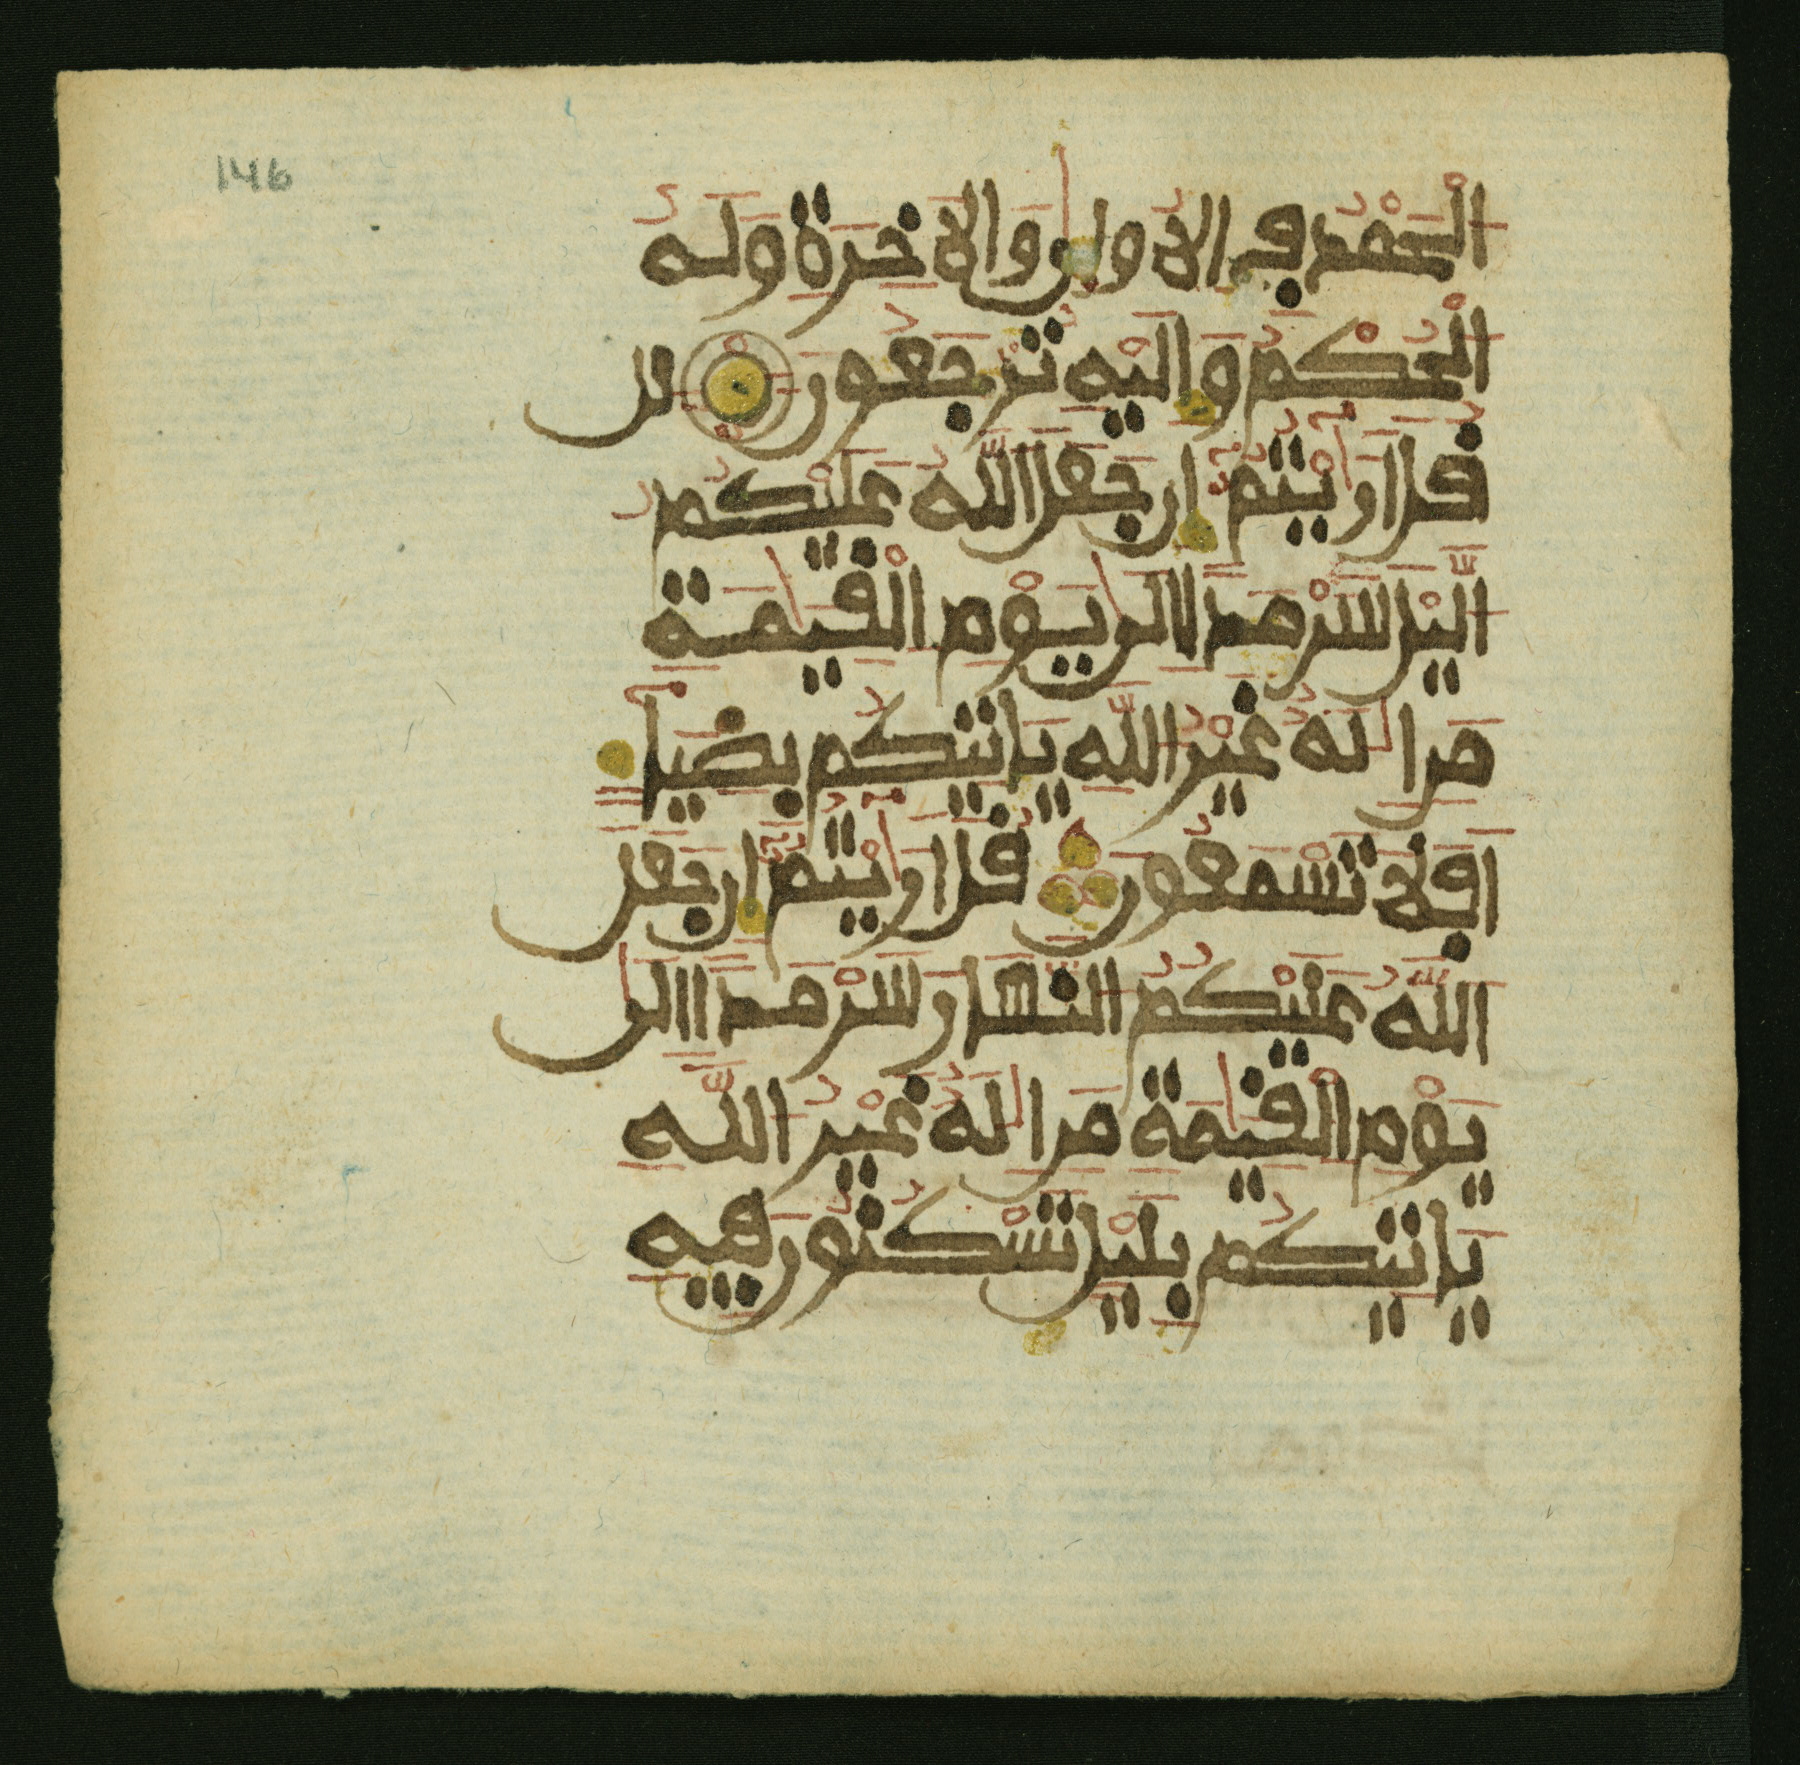 146
الْحَمْدُ فِي الْأُولَىٰ وَالْأَخِرَةِ وَلَهُ
الْحُكْمُ وَإِلَيْهِ تُرْجَعُونَ قل
قُلَ ارَٰيْتُمُ إِن جَعَلَ اللَّهُ عَلَيْكُمُ
الَّيْلَ سَرْمَدًا اِلَىٰ يَوْمِ الْقِيَٰمَةِ
مَنِ اِلَٰهٌ غَيْرُ اللَّهِ يَاتِيكُم بِضِيَاءٍ
اَفَلَا تَسْمَعُونَ قُلَ ارَٰيْتُمُ إِن جَعَلَ
اللَّهُ عَلَيْكُمُ النَّهَارَ سَرْمَدًا اِلَىٰ
يَوْمِ الْقِيَٰمَةِ مَنِ اِلَٰهٌ غَيْرُ اللَّهِ
يَاتِيكُم بِلَيْلٍ تَسْكُنُونَ فِيهِ